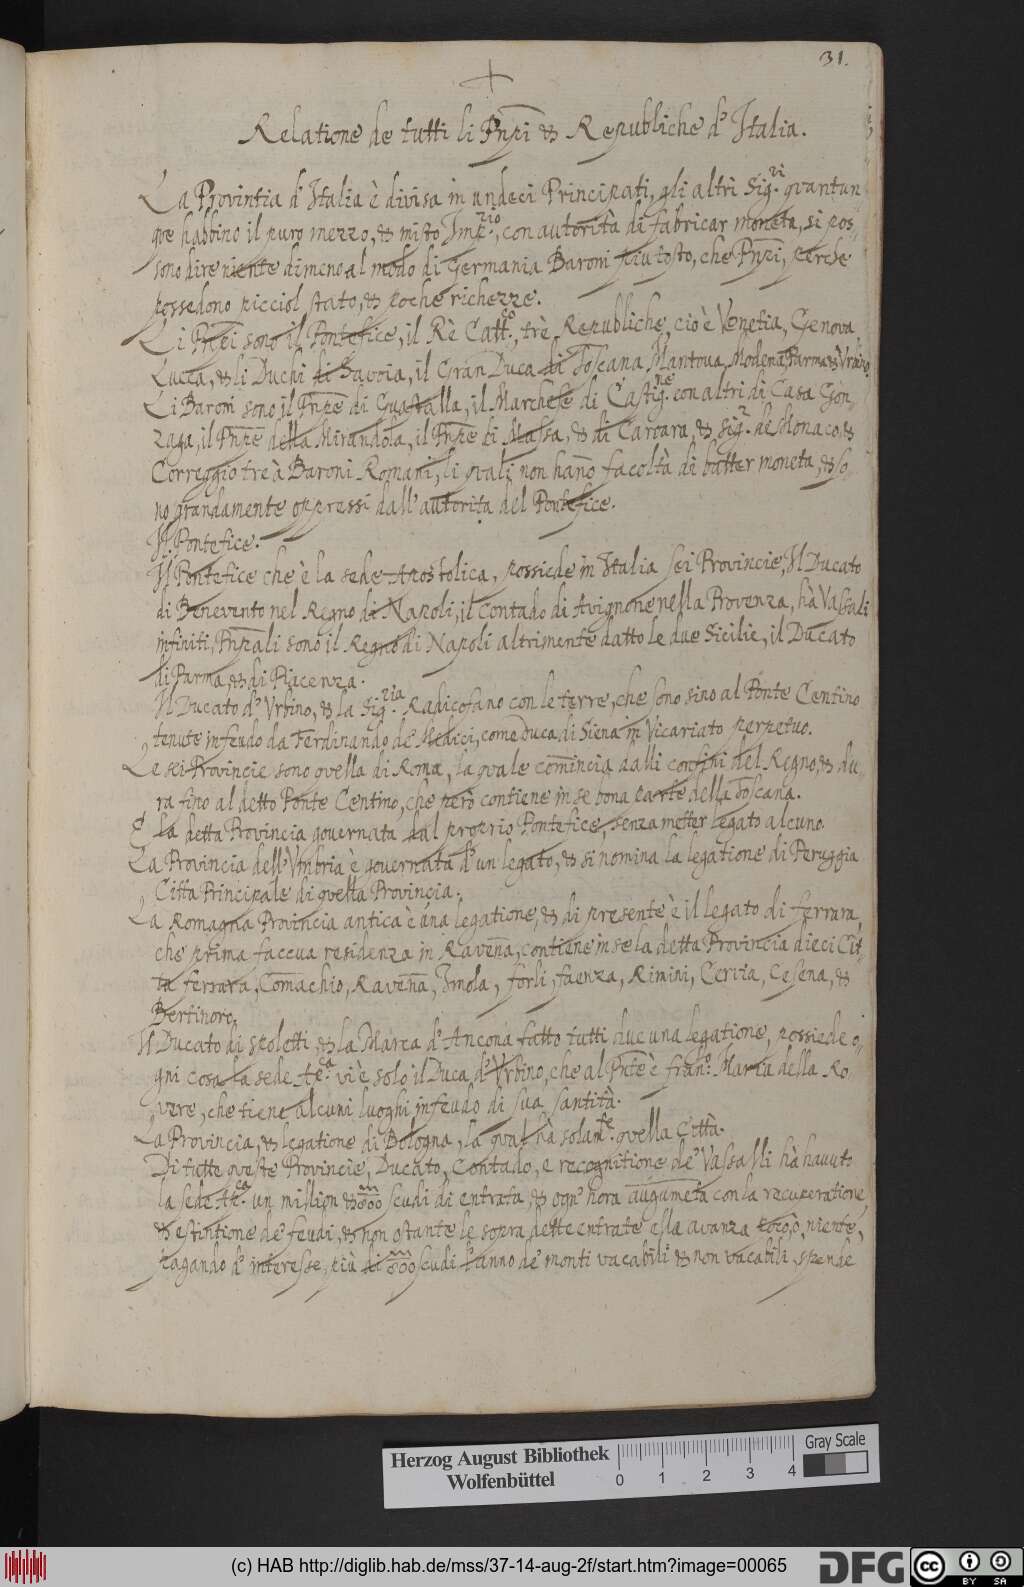 31.
Relatione de tutti li Pn̄pi & Republiche d'Italia.
La Provintia d'Italia è divisa in undeci Principati, gli altri Sig.ri quantun
que habbino il puro mezzo, & misto Imp.rio, con autorità di fabricar moneta, si pos-
sono dire niente dimeno al modo di Germania Baroni piu tosto, che Pn̄pi, perche
possedono picciol stato, & poche richezze.
Li Pn̄pi sono il Pontefice, il Rè Catt.co, trè Republiche, cio è Venetia, Genova
Lucca, & li Duchi di Savoia, il Gran Duca di Toscana Mantova, Modena, Parma & Urbino
Li Baroni sono il Pn̄pe di Guastalla, il Marchese di Castig.ne con altri di Casa Gon-
zaga, il Pn̄pe della Mirandola, il Pn̄pe di Massa, & di Carrara, & sig.r de Monaco, &
Correggio tre à Baroni Romani, li quali non han̄o facoltà di batter moneta, & so-
no grandamente oppressi dall'autorità del Pontefice.
Il Pontefice.
Il Pontefice che è la sede Apostolica, possiede in Italia sei Provincie, Il Ducato
di Benevento nel Regno di Napoli, il Contado di Avignone nella Provenza, hà Vassali
infiniti, Pn̄pali sono il Regno di Napoli altrimente datto le due Sicilie, il Ducato
di Parma, & di Piacenza.
Il Ducato d'Urbino, & la Sig.ria Radicofano con le terre, che sono sino al Ponte Centino
tenute infeudo da Ferdinando de' Medici, come Duca di Siena in Vicariato perpetuo.
Le sei Provincie sono quella di Roma, la quale com̄incia dalli confini del Regno, & du-
ra fino al detto Ponte Centino, che però contiene in se bona parte della Toscana.
E la detta Provincia governata dal proprio Pontefice, senza metter legato alcuno.
La Provincia dell'Umbria è governata d'un legato, & si nomina la legatione di Peruggia
Citta Principale di questa Provincia.
La Romagna Provincia antica è una legatione, & di presente è il legato di ferrara,
che prima faceua residenza in Raven̄a, contiene in se la detta Provincia dieci Cit-
ta ferrara, Com̄achio, Raven̄a, Imola, forli, faenza, Rimini, Cervia, Cesena, &
Bertinoro.
Il Ducato di spoletti & la Marca d'Ancona fatto tutti due una legatione, possiede o-
gni cosa la sede Ap.ca vi è solo il Duca d'Urbino, che al Pn̄te è fran.o Maria della Ro
vere, che tiene alcuni luoghi infeudo di sua santità.
La Provincia, & legatione di Bologna, la qual hà solam.te quella Città.
Di tutte queste Provincie, Ducato, Contado, e recognitione de' Vassalli hà havuto
la sede Ap.ca un million & scudi di entrata, & ogn'hora augumeta con la recuperatione,
& estintione de' feudi, & non ostante le sopra dette entrate essa avanza poco, ò niente,
pagando d'interesse, più di scudi l'anno de' monti vacabili & non vacabili, spende
Herzog August Bibliothek
Wolfenbüttel
0 1 2 3 4
Gray Scale
(c) HAB http://diglib.hab.de/mss/37-14-aug-2f/start.htm?image=00065
DFG
cc BY SA